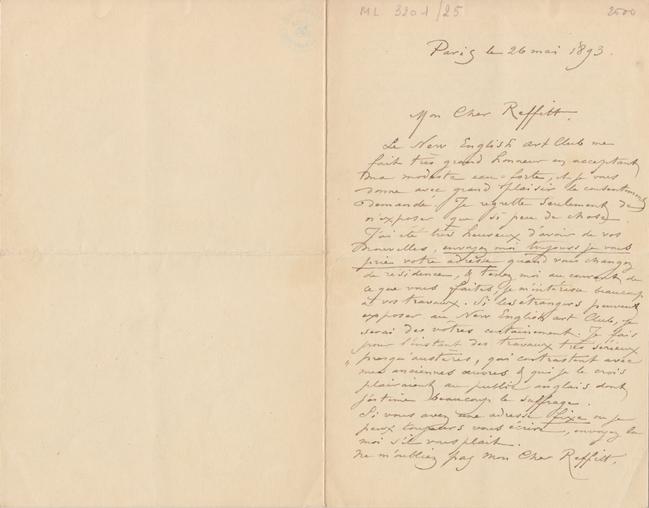 ML 3201/25
2500
Paris le 26 mai 1893.
Mon Cher Reffitt.
Le New English art Club me
fait très grand honneur en acceptant
ma modeste eau-forte, et je vous
donne avec grand plaisir le consentement
demandé. Je regrette seulement de
n'exposer que si peu de chose.
J'ai été très heureux d'avoir de vos
nouvelles, envoyez moi toujours je vous
prie votre adresse quand vous changez
de residence, & tenez moi au courant de
ce que vous faites, je m'intéresse beaucoup
à vos travaux. Si les étrangers peuvent
exposer au New English art Club, je
serai des votres certainement. Je fais
pour l'instant des travaux très sérieux
presqu'austères, qui contrastent avec
mes anciennes œuvres & qui je le crois
plairaient au public anglais dont
j'estime beaucoup le suffrage.
Si vous avez une adresse fixe ou je
peux toujours vous écrire, envoyez la
moi s'il vous plait.
Ne m'oubliez pas mon Cher Reffitt.